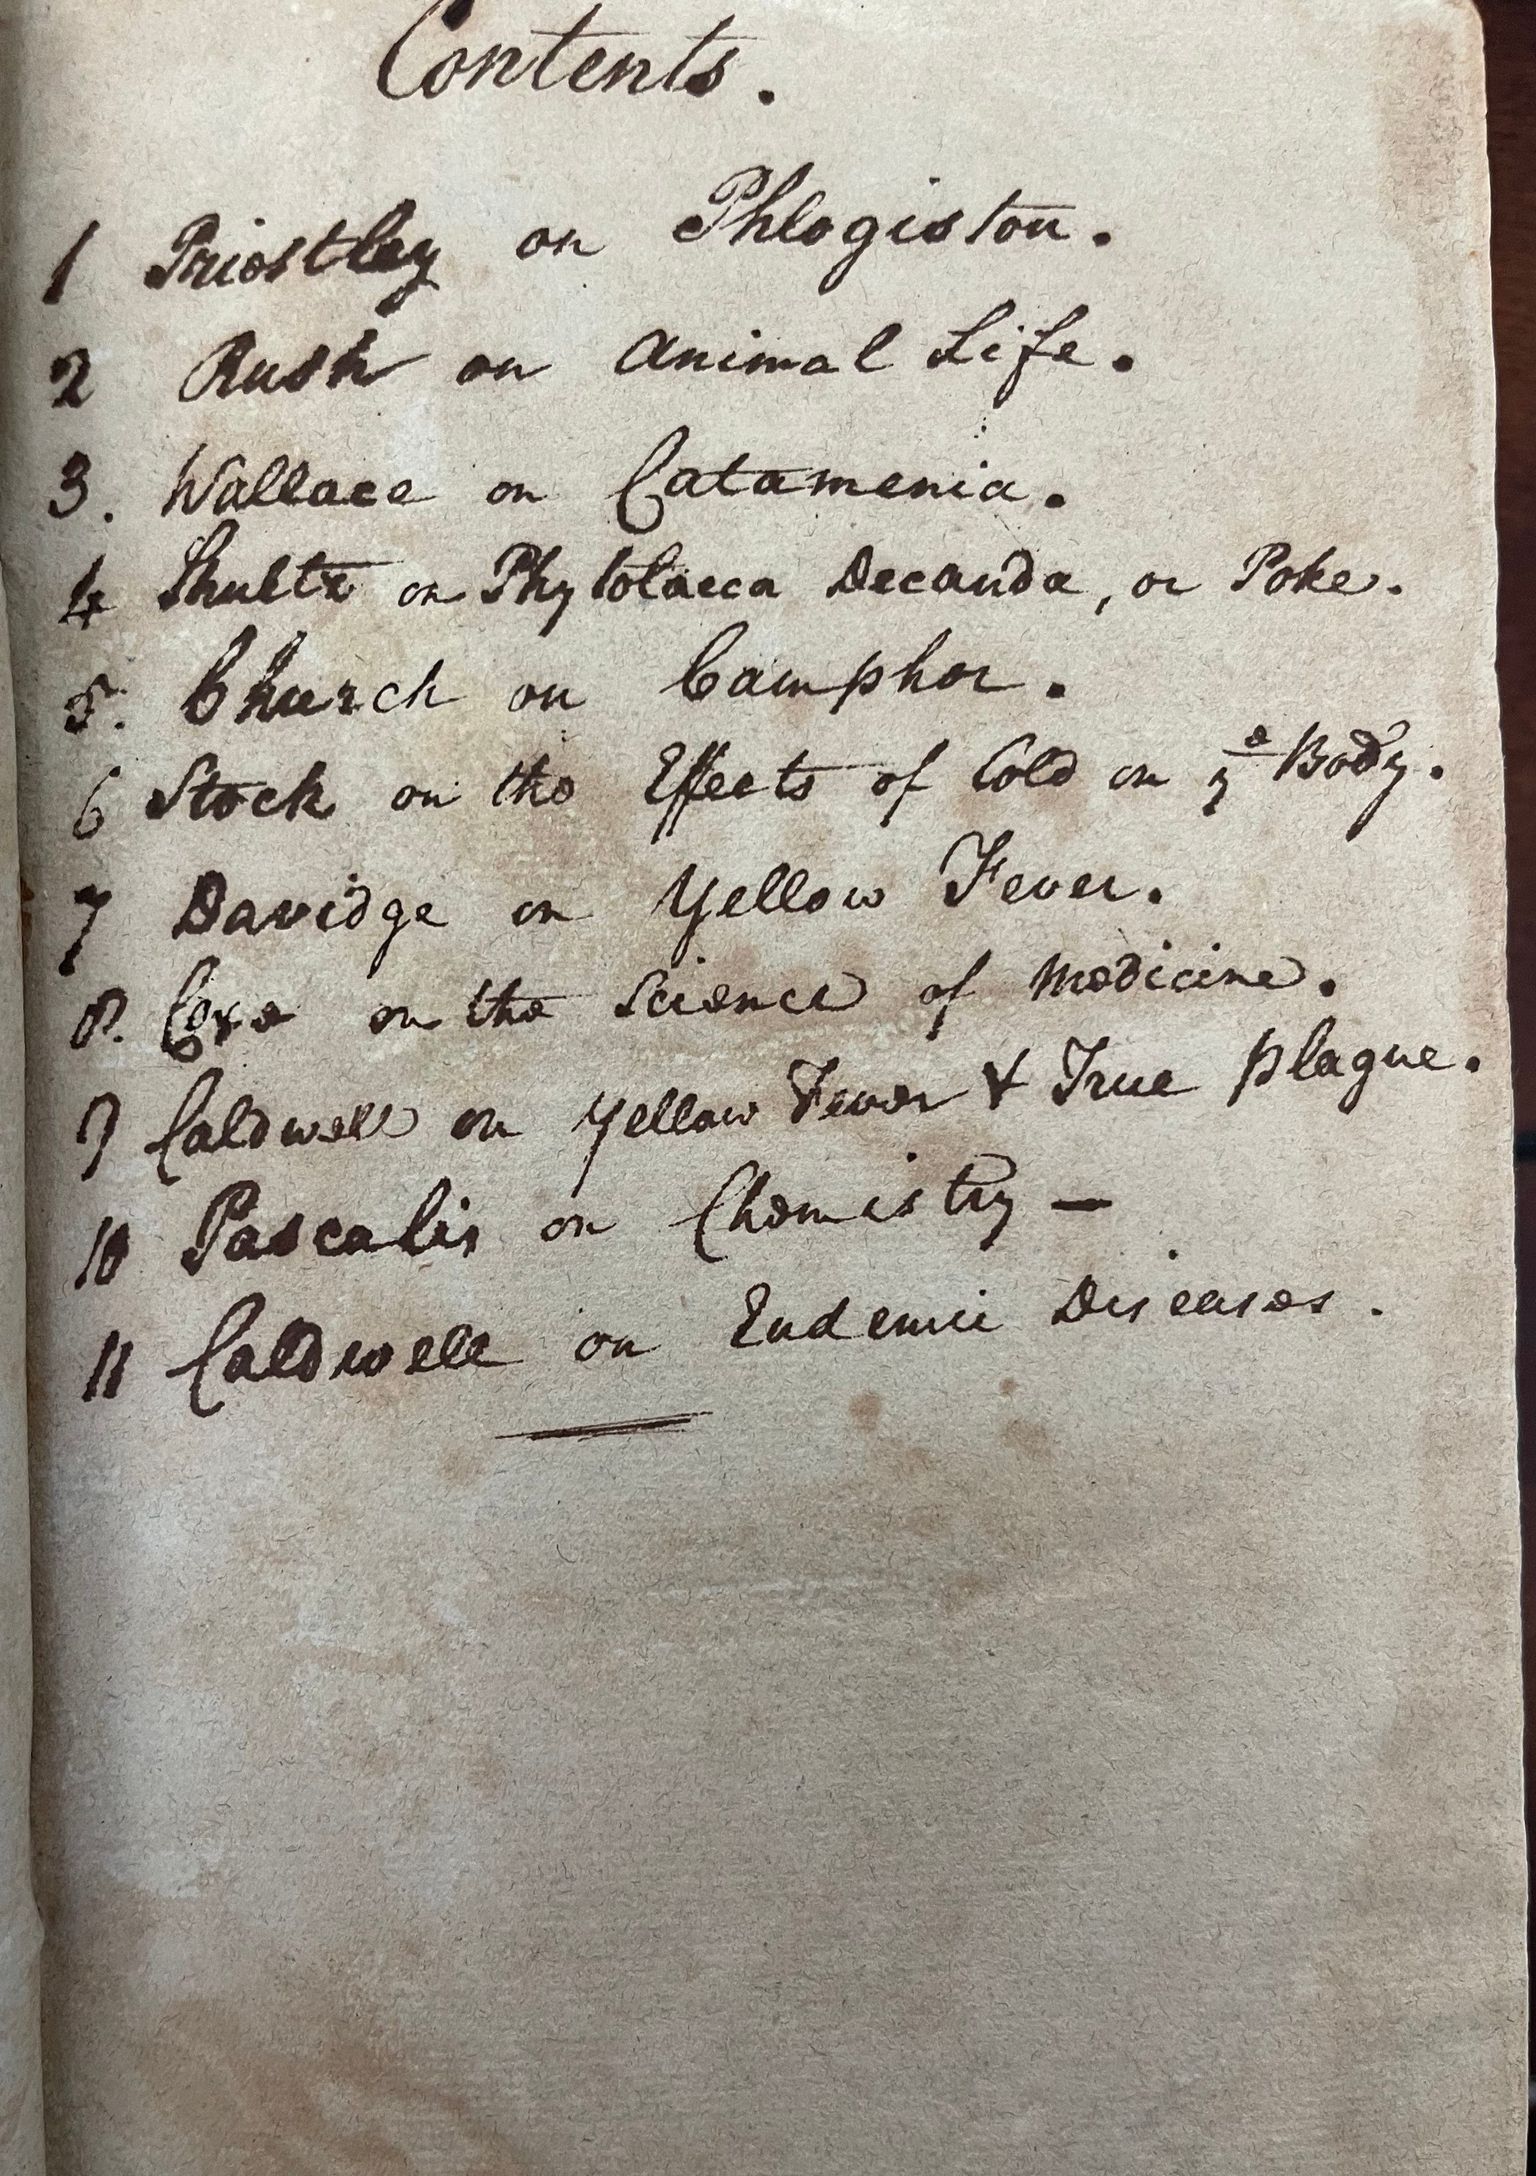 Contents.
1 Priestley on Phlogiston.
2 Rush on Animal Life.
3. Wallace on Catamenia.
4 Shultz on Phytolacca Decanda, or Poke.
5. Church on Camphor.
6 Stock on the Effects of Cold on ye Body.
7 Davidge on Yellow Fever.
8. Coxe on the Science of Medicine.
9 Caldwell on Yellow Fever & True Plague.
10 Pascalis on Chemistry —
11 Caldwell on Endemic Diseases.